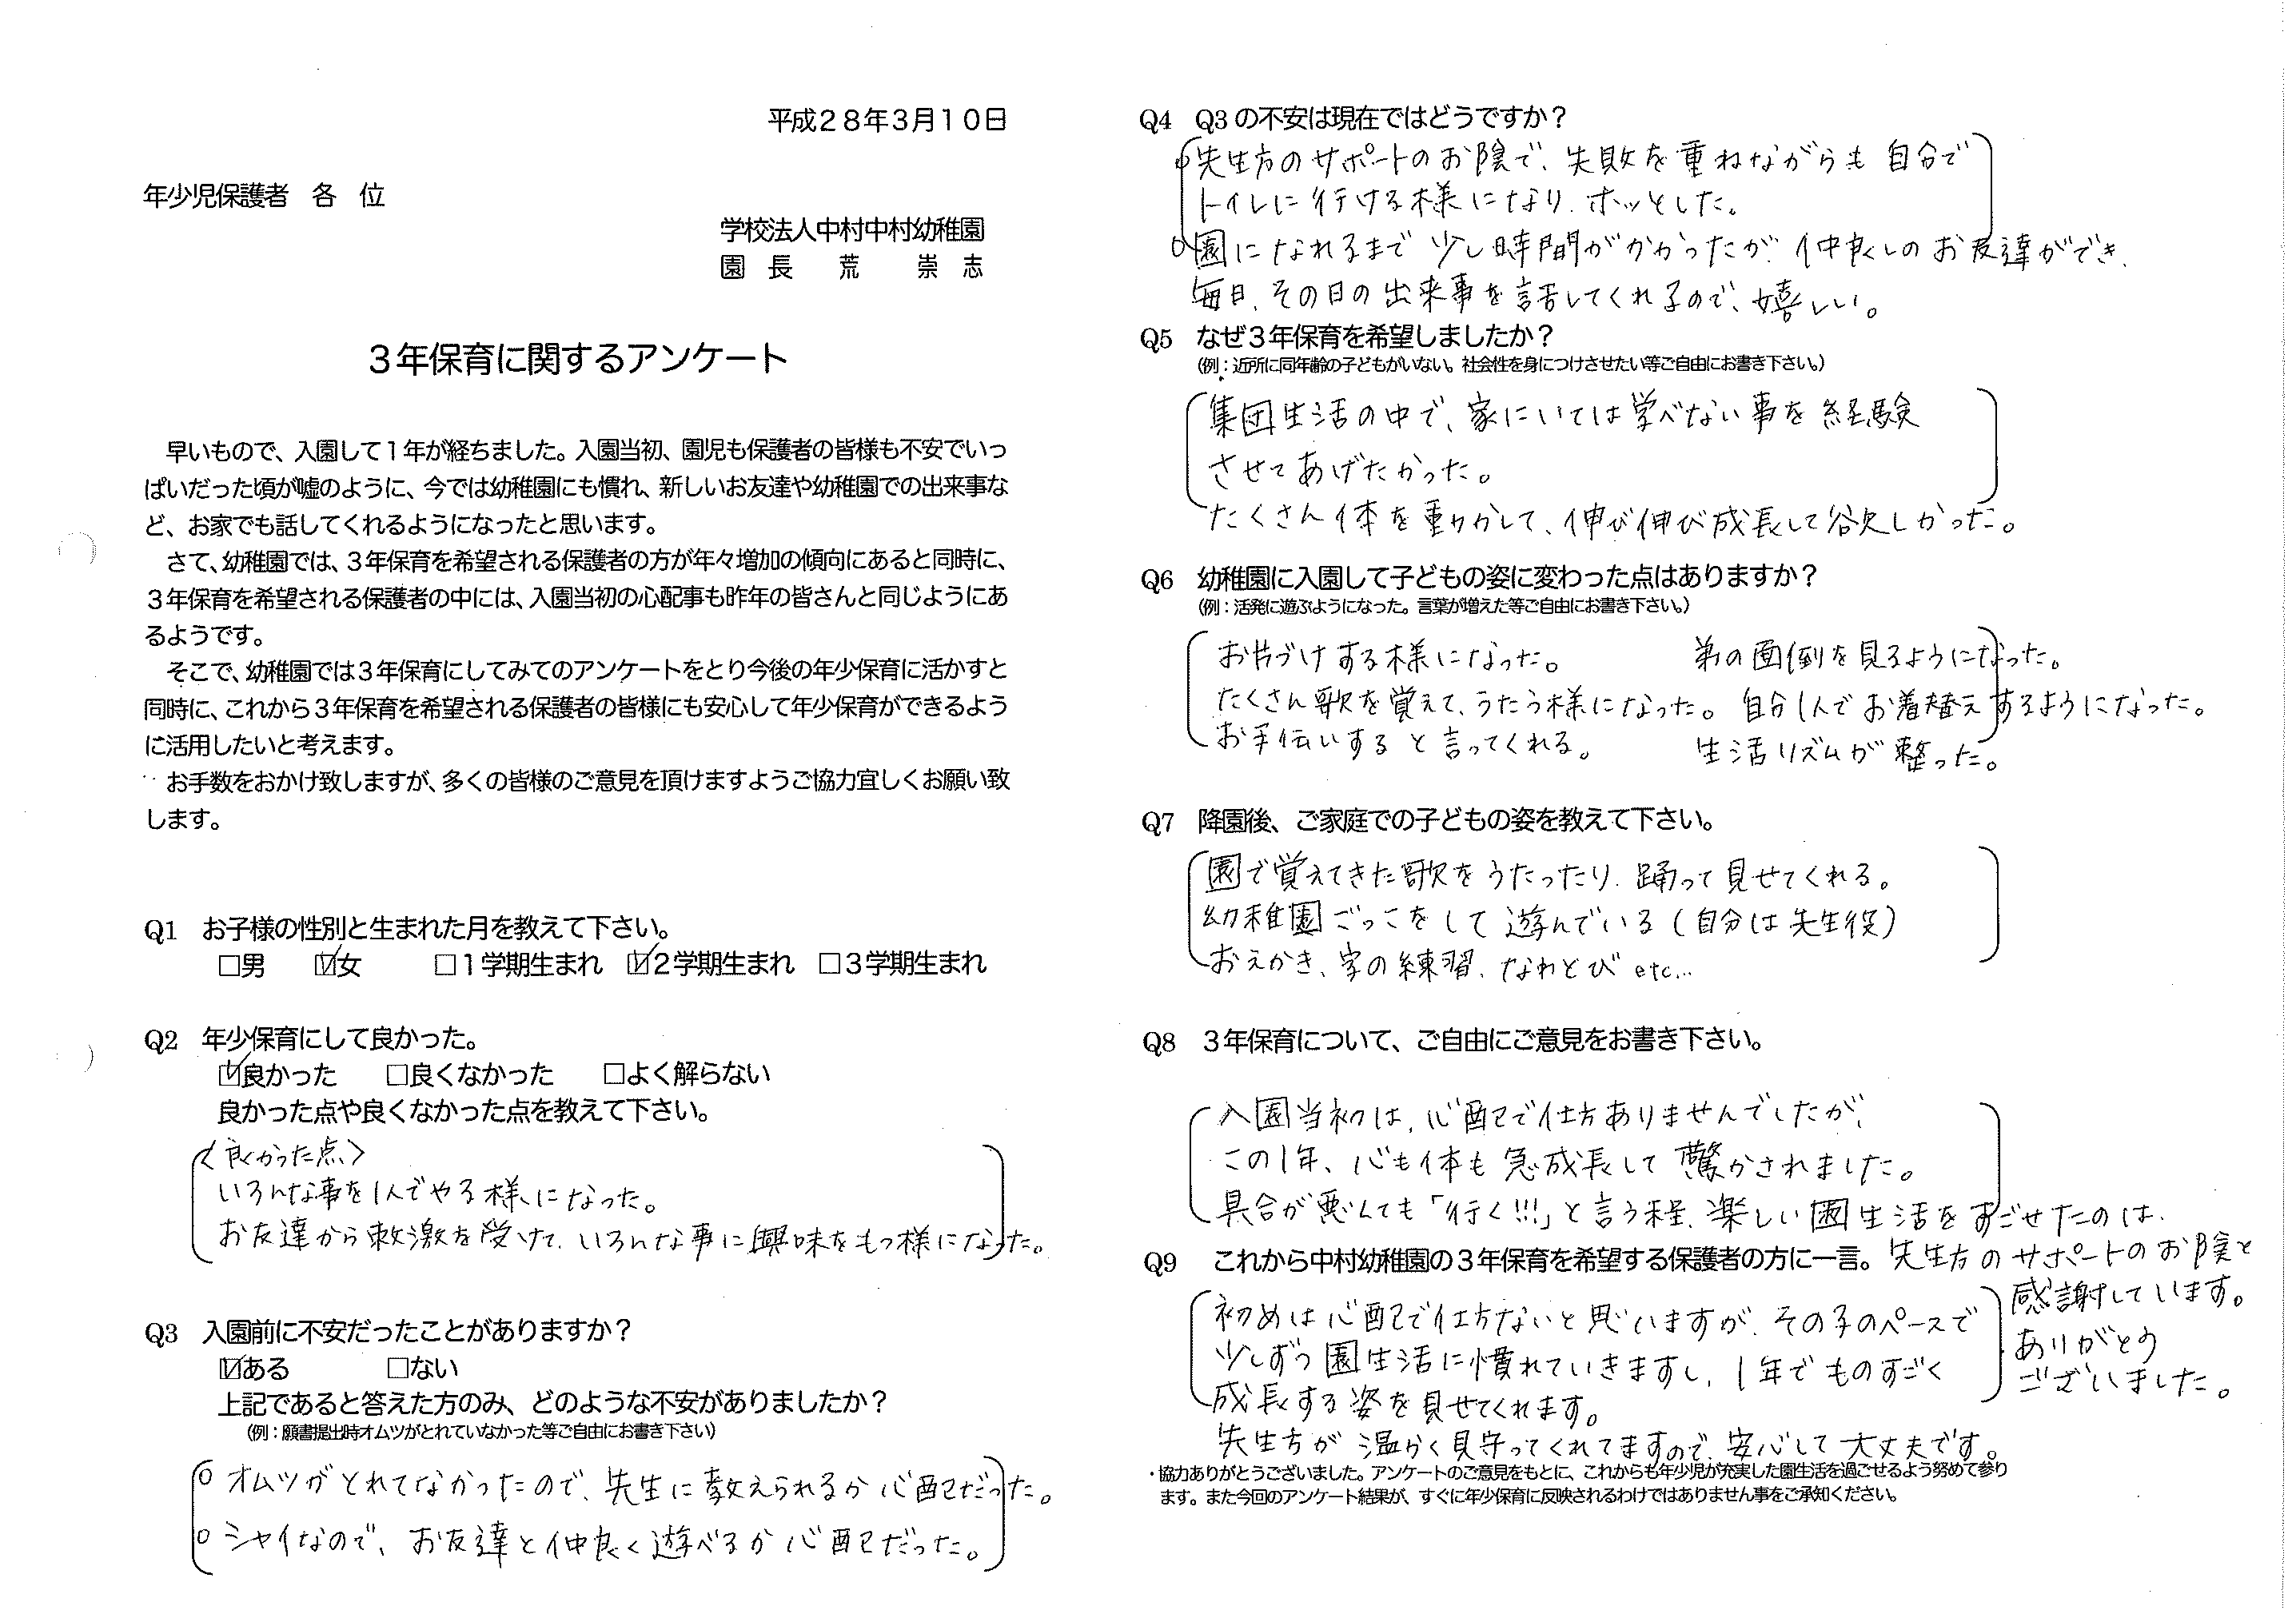 平成２８年３月１０日
年少児保護者　各　位
学校法人中村中村幼稚園
園　長　　荒　　崇　志
３年保育に関するアンケート
早いもので、入園して１年が経ちました。入園当初、園児も保護者の皆様も不安でいっ
ぱいだった頃が嘘のように、今では幼稚園にも慣れ、新しいお友達や幼稚園での出来事な
ど、お家でも話してくれるようになったと思います。
さて、幼稚園では、３年保育を希望される保護者の方が年々増加の傾向にあると同時に、
３年保育を希望される保護者の中には、入園当初の心配事も昨年の皆さんと同じようにあ
るようです。
そこで、幼稚園では３年保育にしてみてのアンケートをとり今後の年少保育に活かすと
同時に、これから３年保育を希望される保護者の皆様にも安心して年少保育ができるよう
に活用したいと考えます。
お手数をおかけ致しますが、多くの皆様のご意見を頂けますようご協力宜しくお願い致
します。
Q1　お子様の性別と生まれた月を教えて下さい。
□男　☑女　□１学期生まれ　☑２学期生まれ　□３学期生まれ
Q2　年少保育にして良かった。
☑良かった　□良くなかった　□よく解らない
良かった点や良くなかった点を教えて下さい。
〈良かった点〉
いろんな事を1人でやる様になった。
お友達から刺激を受けて、いろんな事に興味をもつ様になった。
Q3　入園前に不安だったことがありますか？
☑ある　□ない
上記であると答えた方のみ、どのような不安がありましたか？
（例：願書提出時オムツがとれていなかった等ご自由にお書き下さい）
○ オムツがとれてなかったので、先生に教えられるか心配だった。
○ シャイなので、お友達と仲良く遊べるか心配だった。
Q4　Q3の不安は現在ではどうですか？
○先生方のサポートのお陰で、失敗を重ねながらも自分で
トイレに行ける様になり、ホッとした。
○園になれるまで少し時間がかかったが、仲良しのお友達ができ、
毎日、その日の出来事を話してくれるので、嬉しい。
Q5　なぜ３年保育を希望しましたか？
（例：近所に同年齢の子どもがいない。社会性を身につけさせたい等ご自由にお書き下さい。）
集団生活の中で、家にいては学べない事を経験
させてあげたかった。
たくさん体を動かして、伸び伸び成長して欲しかった。
Q6　幼稚園に入園して子どもの姿に変わった点はありますか？
（例：活発に遊ぶようになった。言葉が増えた等ご自由にお書き下さい。）
お片づけする様になった。　弟の面倒を見るようになった。
たくさん歌を覚えて、うたう様になった。　自分1人でお着替えするようになった。
お手伝いすると言ってくれる。　生活リズムが整った。
Q7　降園後、ご家庭での子どもの姿を教えて下さい。
園で覚えてきた歌をうたったり、踊って見せてくれる。
幼稚園ごっこをして遊んでいる（自分は先生役）
おえかき、字の練習、なわとび etc...
Q8　３年保育について、ご自由にご意見をお書き下さい。
入園当初は、心配で仕方ありませんでしたが、
この1年、心も体も急成長して驚かされました。
具合が悪くても「行く!!!」と言う程、楽しい園生活をすごせたのは、
先生方のサポートのお陰と
感謝しています。
ありがとう
ございました。
Q9　これから中村幼稚園の３年保育を希望する保護者の方に一言。
初めは心配で仕方ないと思いますが、その子のペースで
少しずつ園生活に慣れていきますし、1年でものすごく
成長する姿を見せてくれます。
先生方が温かく見守ってくれてますので、安心して大丈夫です。
・協力ありがとうございました。アンケートのご意見をもとに、これからも年少児が充実した園生活を過ごせるよう努めて参り
ます。また今回のアンケート結果が、すぐに年少保育に反映されるわけではありません事をご承知ください。